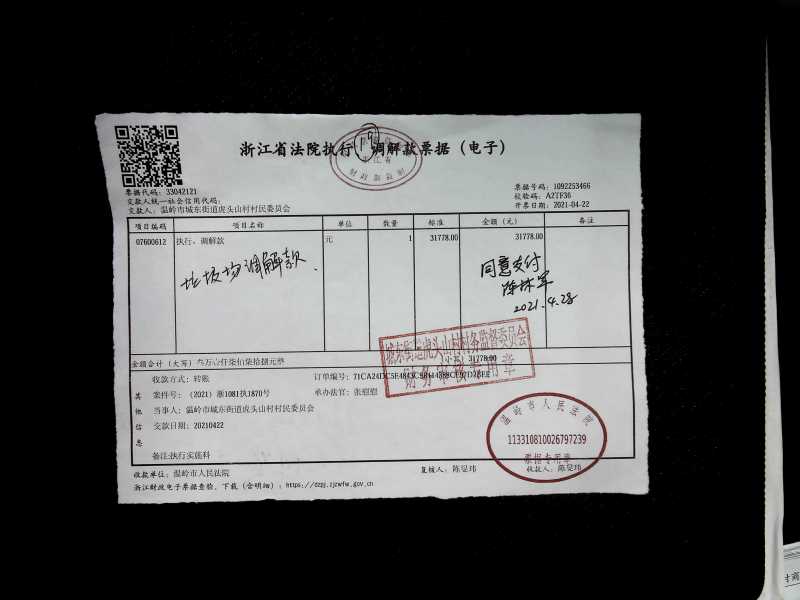 浙江省法院执行、调解款票据（电子）
19
浙江省
票据代码：33042121
票据号码：1092253466
交款人统一社会信用代码：
校验码：A2TF36
交款人：温岭市城东街道虎头山村村民委员会
开票日期：2021-04-22
项目编码 项目名称 单位 数量 标准 金额（元） 备注
07600612 执行、调解款 元 1 31778.00 31778.00
垃圾场调解款.
同意支付
2021.4.28
城东街道虎头山村村务监督委员会
财务审核专用章
金额合计（大写）叁万壹仟柒佰柒拾捌元整 （小写）31778.00
其他信息
收款方式：转账 订单编号：
案件号：（2021）浙1081执1870号 承办法官：张煜煜
当事人：温岭市城东街道虎头山村村民委员会
交款日期：20210422
备注：执行实施科
温岭市人民法院
113310810026797239
票据专用章
收款单位：温岭市人民法院 复核人：陈旻玮 收款人：陈旻玮
浙江财政电子票据查验、下载（含明细）：https://dzpj.zjzwfw.gov.cn